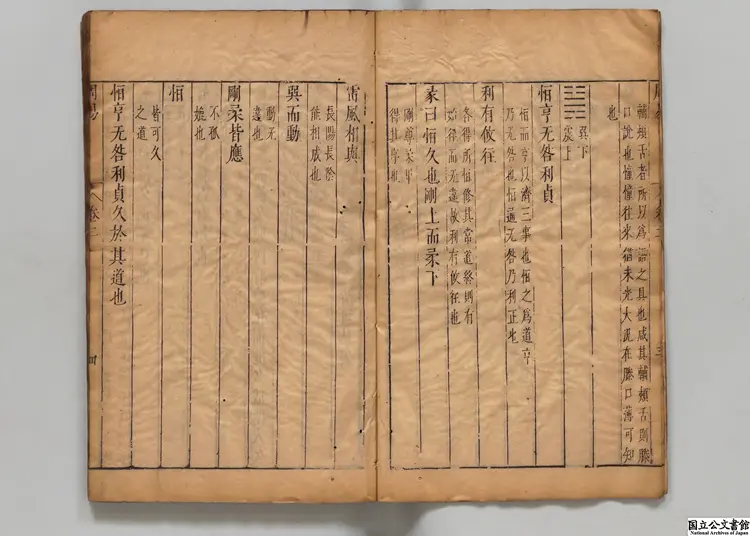 輔頰舌者所以為語之具也咸其輔頰舌則滕
口說也憧憧往來猶未光大況在滕口薄可知
也
巽下
震上
恒亨无咎利貞
恒而亨以濟三事也恒之為道亨
乃无咎也恒通无咎乃利正也
利有攸往
各得所恒修其常道終則有
始往而无違故利有攸往也
彖曰恒久也剛上而柔下
剛尊柔卑
得其序也
雷風相與
長陽長陰
能相成也
巽而動
動无
違也
剛柔皆應
不孤
媲也
恒
皆可久
之道
恒亨无咎利貞久於其道也
周易 卷二 四
国立公文書館
National Archives of Japan